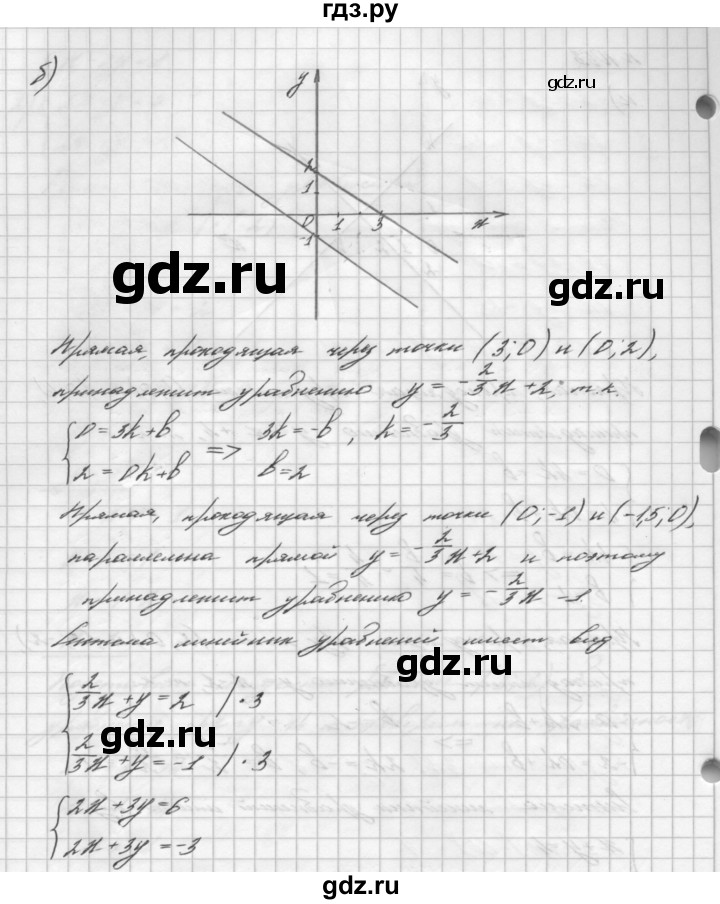 гдз.ру
б)
y
gdz.ru
2
1
0 1 3 x
-1
gdz.ru
gdz.ru
Прямая, проходящая через точки (3;0) и (0;2),
принадлежит уравнению y = -2/3x + 2, т.к.
{0 = 3k+b => 3k = -b, k = -2/3
{2 = 0k+b b = 2
Прямая, проходящая через точки (0;-1) и (-1,5;0),
параллельна прямой y = -2/3x + 2 и поэтому
принадлежит уравнению y = -2/3x - 1.
Система линейных уравнений имеет вид
gdz.ru
{2/3x + y = 2 / · 3
gdz.ru
{2/3x + y = -1 / · 3
{2x + 3y = 6
{2x + 3y = -3
gdz.ru